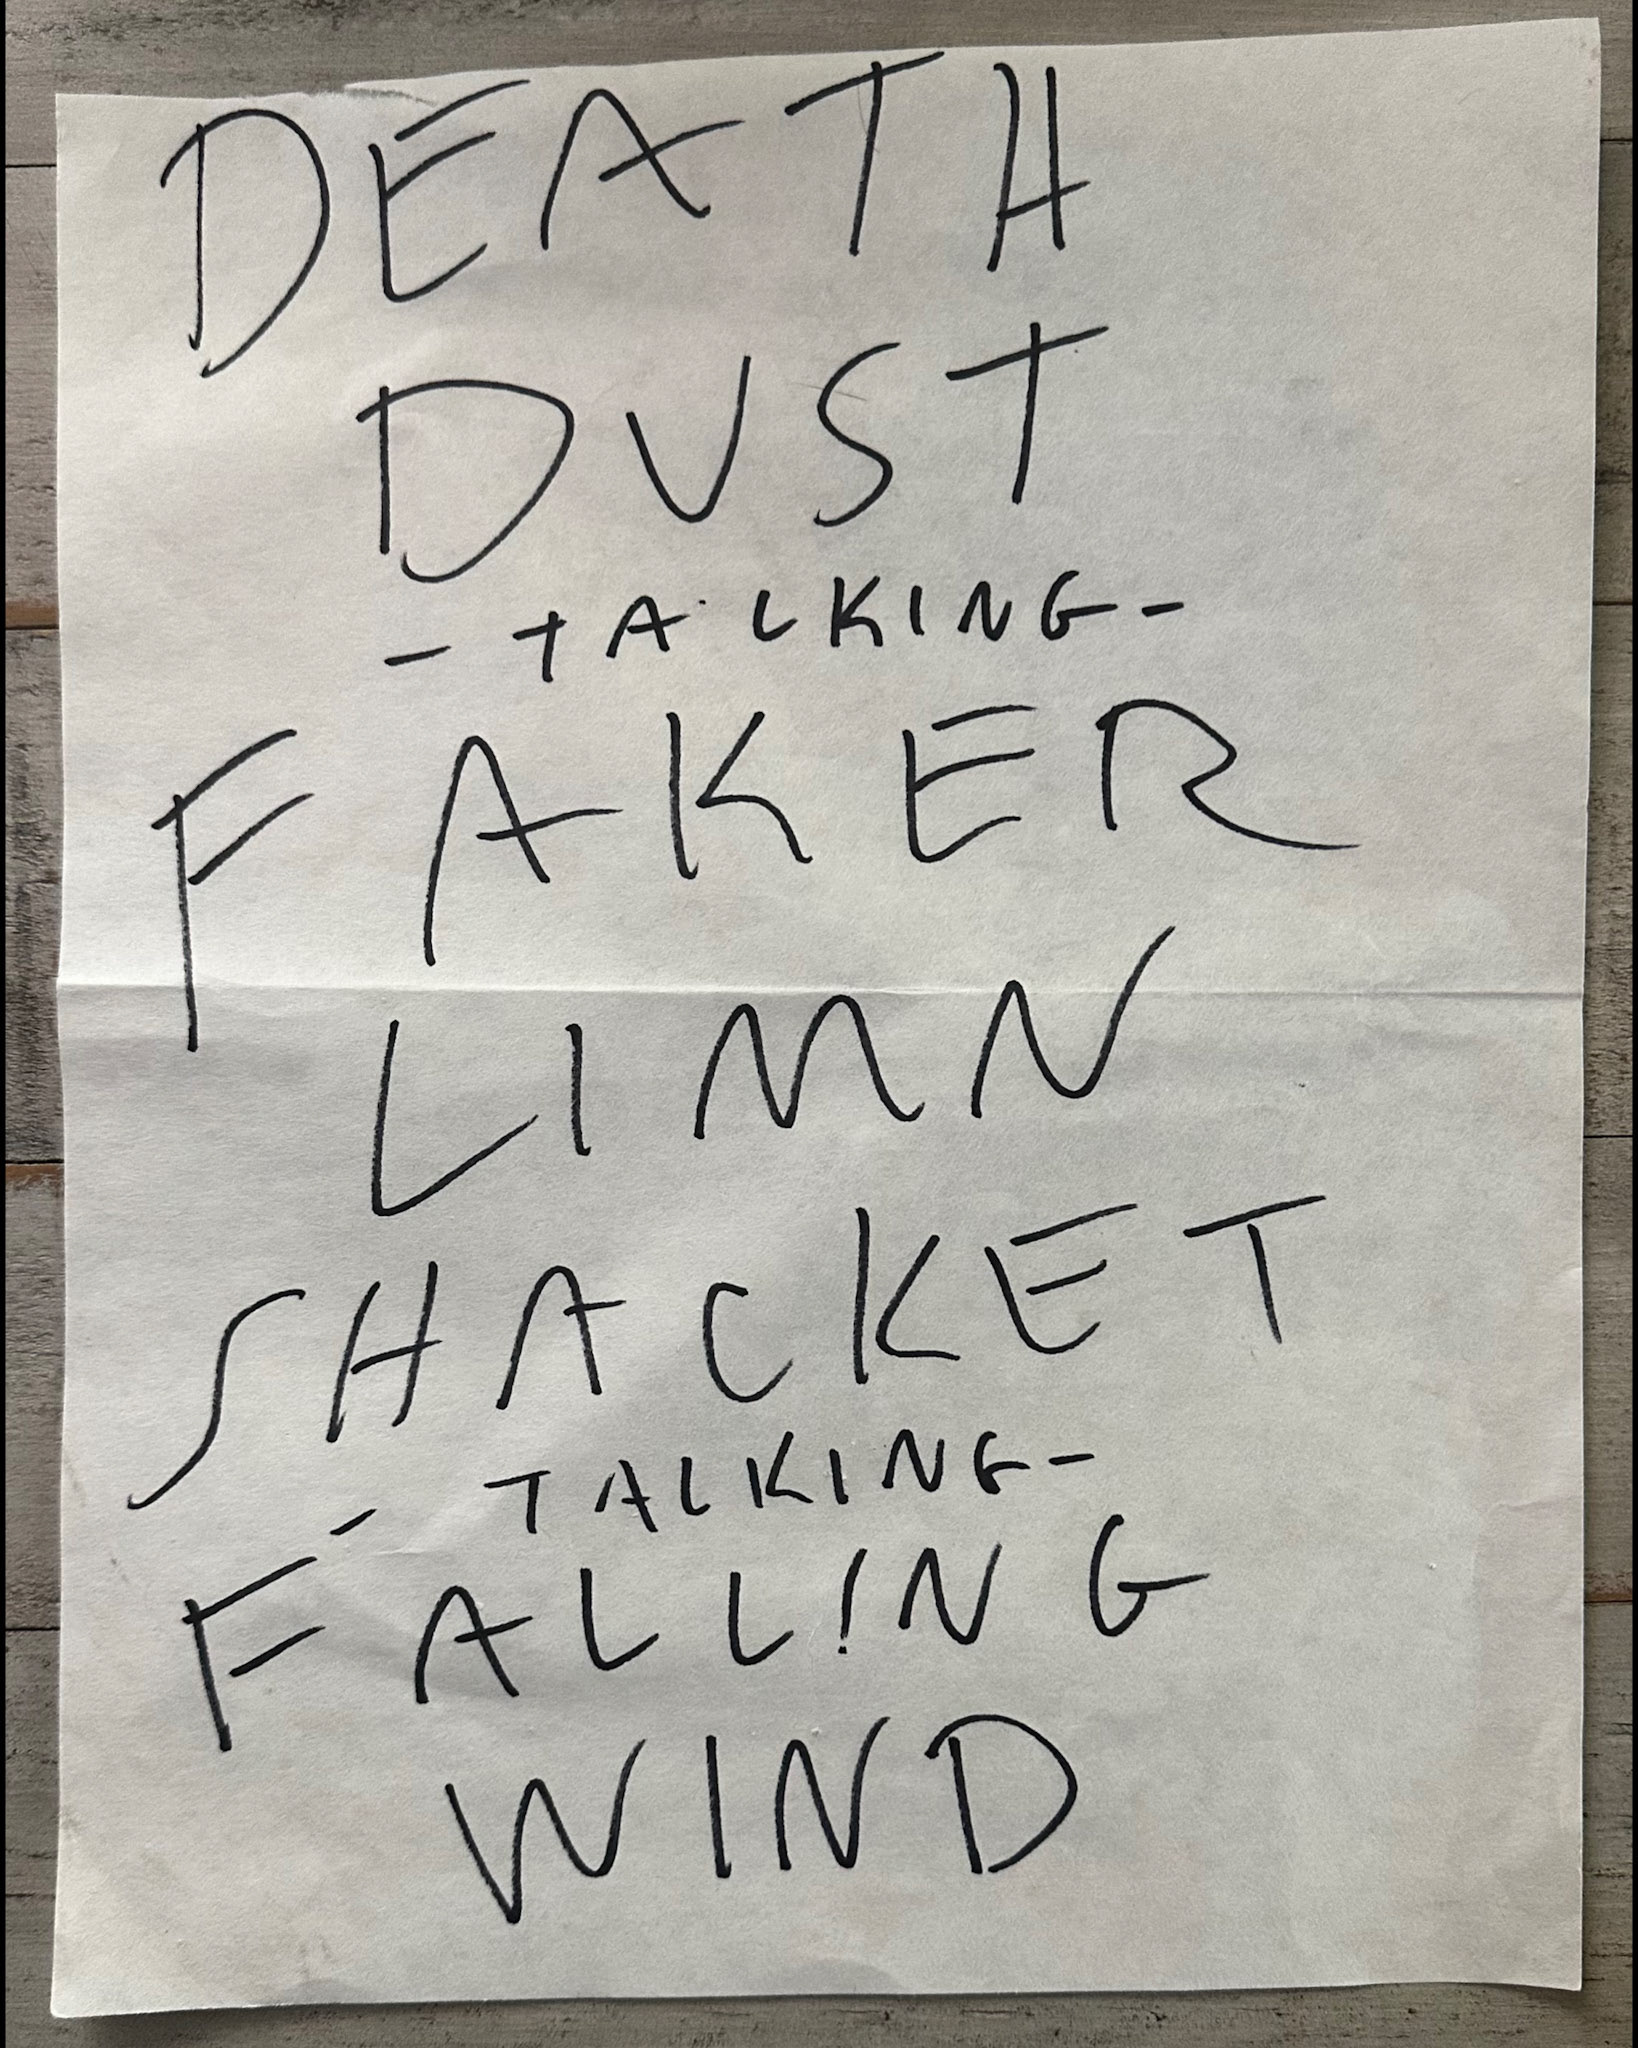 DEATH
DUST
- TALKING -
FAKER
LIMN
SHACKET
- TALKING -
FALLING
WIND